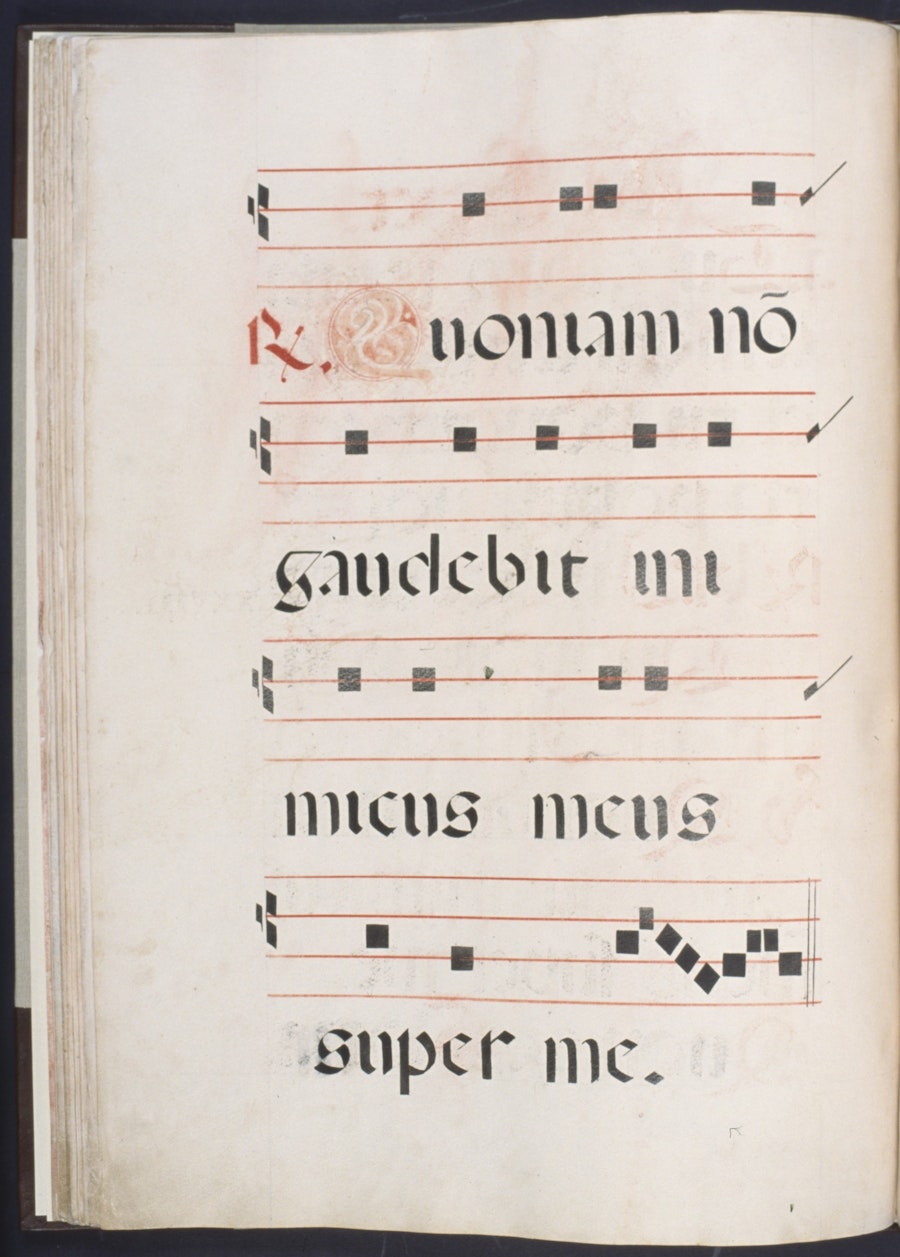 ℟. Quoniam nō
gaudebit ini
micus meus
super me.